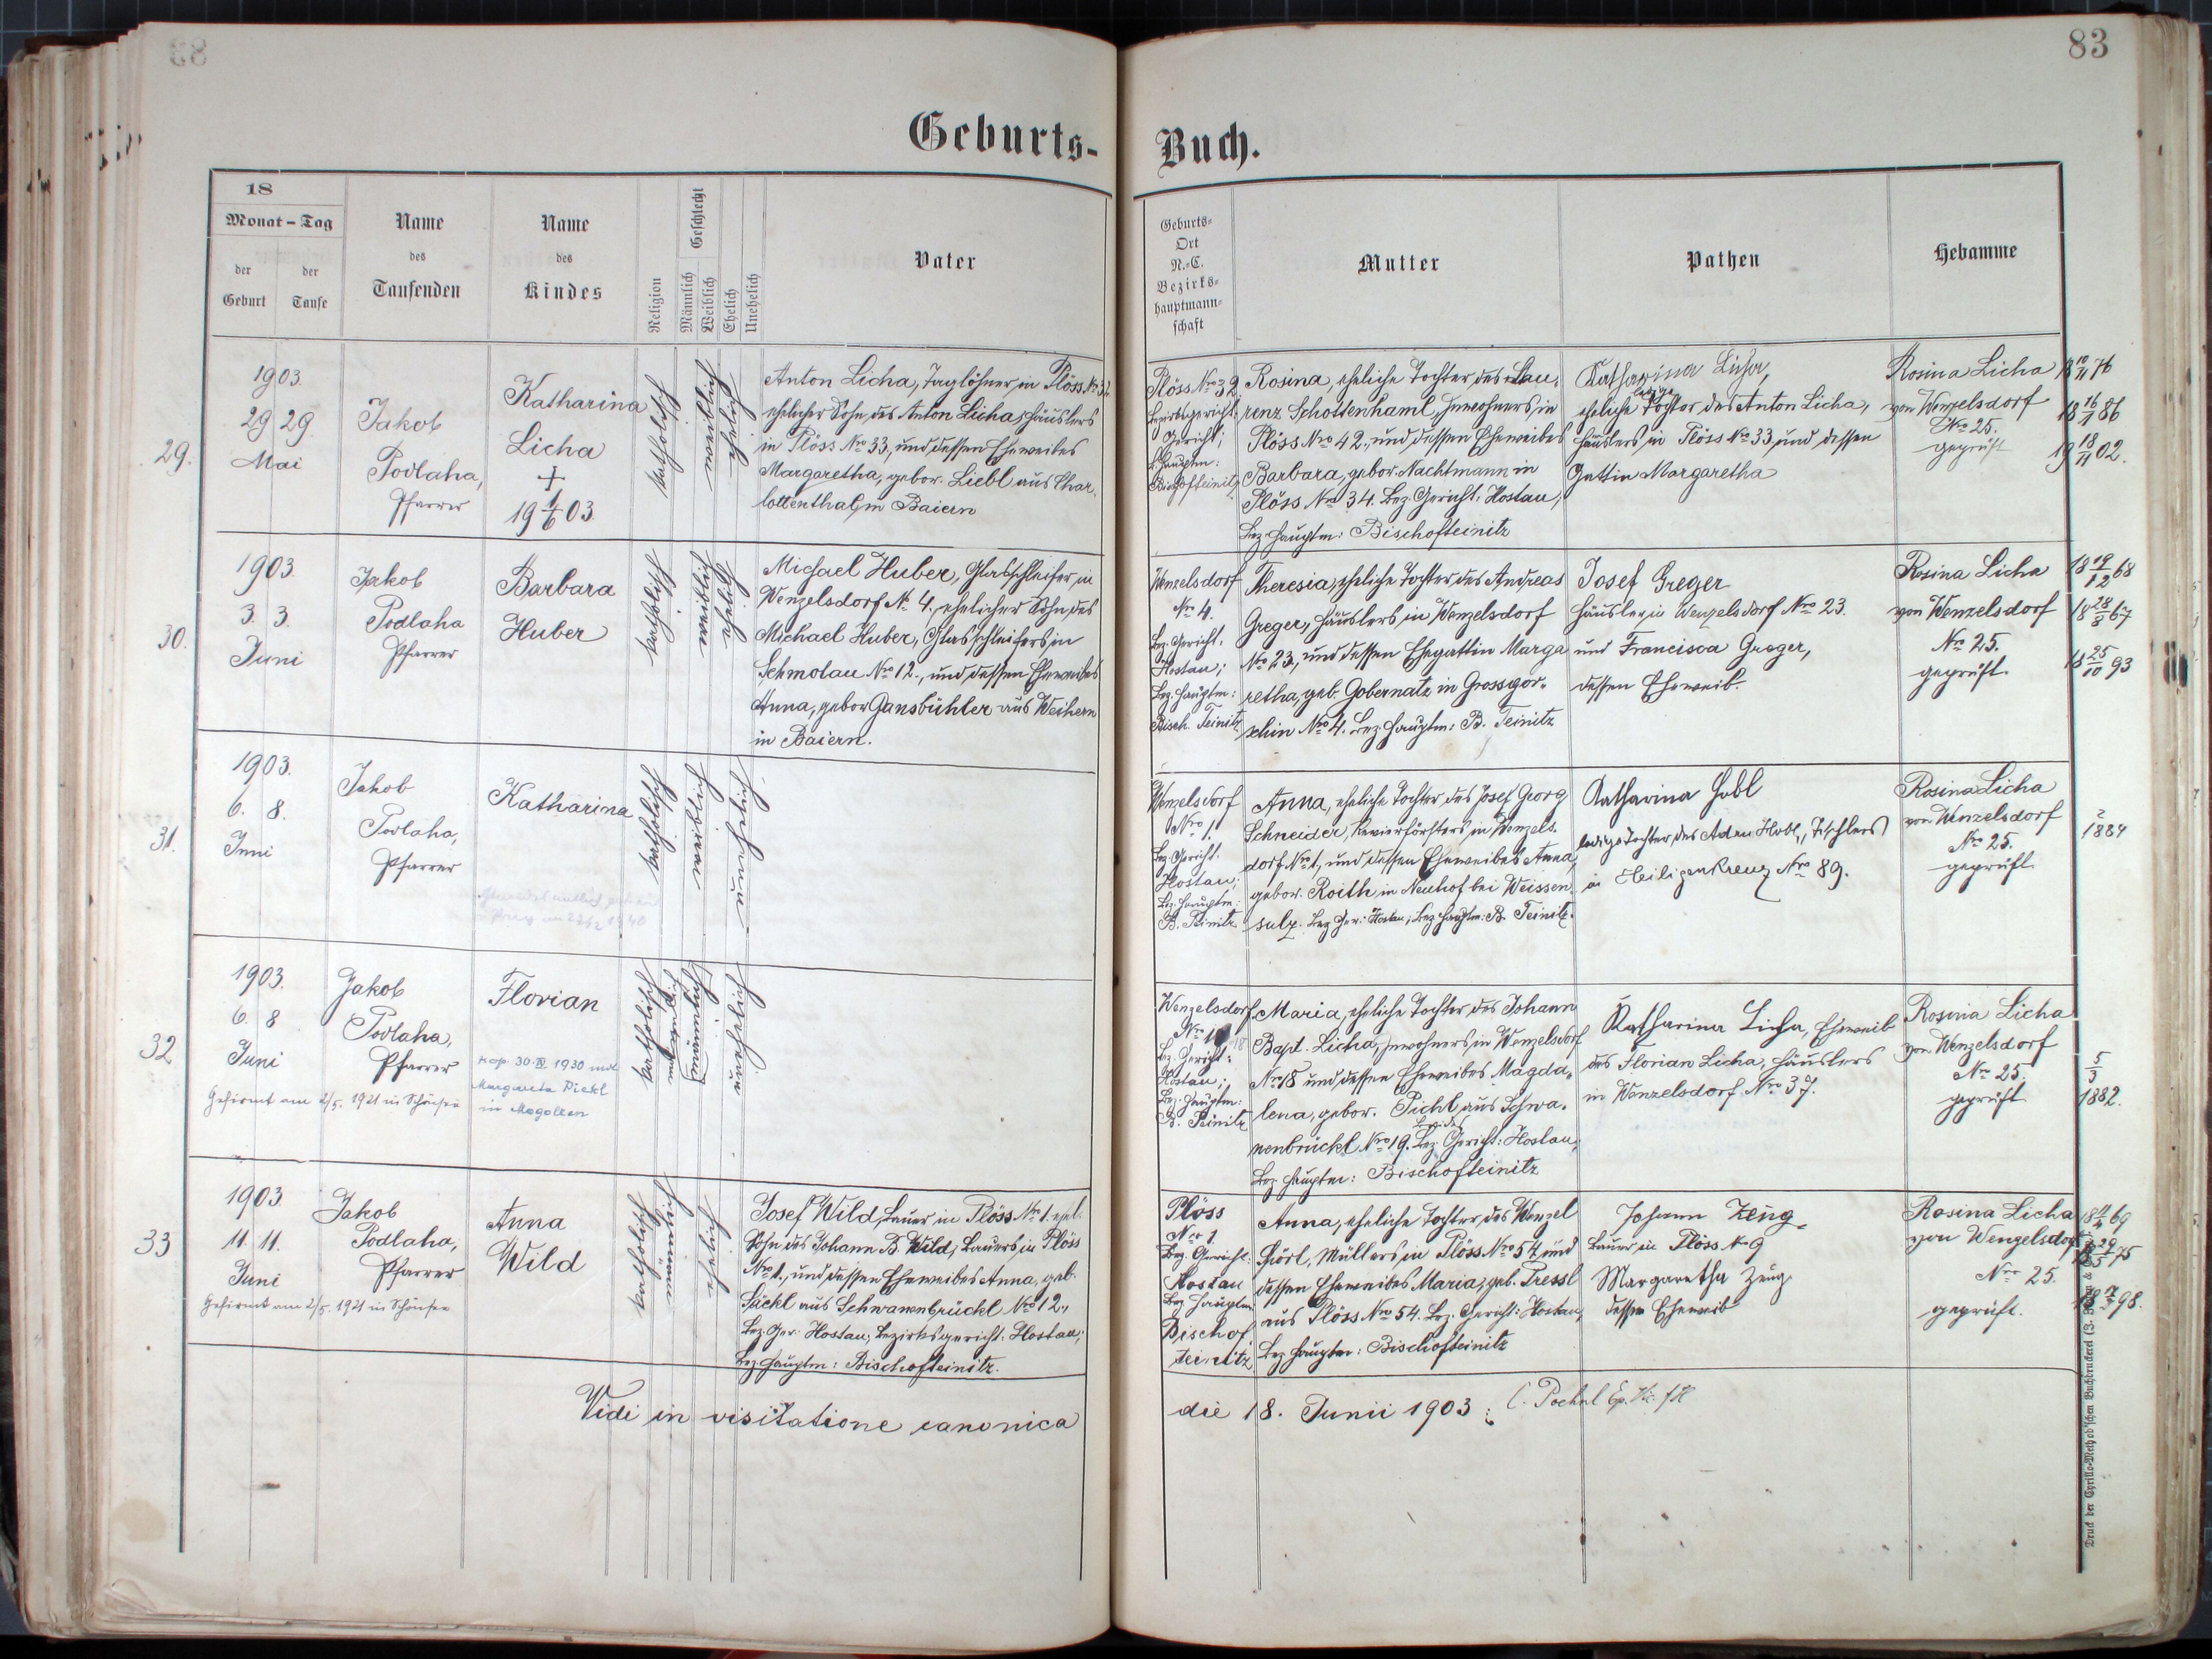 83
Geburts-
Buch.
18
Monat-Tag
der Geburt
der Taufe
Name
des
Taufenden
Name
des
Kindes
Religion
Männlich
Weiblich
Geschlecht
Ehelich
Unehelich
Vater
Geburts-
Ort
N.-C.
Bezirks-
hauptmann-
schaft
Mutter
Pathen
Hebamme
29.
1903.
29 29
Mai
Jakob
Podlaha,
Pfarrer
Katharina
Licha
+
19 1/6 03
katholisch
weiblich
ehelich
Anton Licha, Taglöhner in Plöss No 32
ehelicher Sohn des Anton Licha, Häuslers
in Plöss Nro 33, und dessen Eheweibes
Margaretha, gebor. Liebl aus Char-
lottenthal, in Baiern
Plöss Nro 32
Bezirksgericht:
Gericht;
Bischofteinitz
Rosina, eheliche Tochter des Lau-
renz Schottenhaml, Inwohners in
Plöss Nro 42., und dessen Eheweibes
Barbara, gebor. Nachtmann in
Plöss Nro 34. Bez. Gericht: Hostau,
Bez. Hauptm: Bischofteinitz
Katharina Licha,
ledige
eheliche Tochter des Anton Licha,
Häuslers in Plöss Nro 33, und dessen
Gattin Margaretha
Rosina Licha
von Wenzelsdorf
No 25.
geprüft
18 10/11 76
18 16/1 86
19 18/11 02.
30.
1903.
3. 3.
Juni
Jakob
Podlaha
Pfarrer
Barbara
Huber
katholisch
weiblich
ehelich
Michael Huber, Glasschleifer in
Wenzelsdorf No 4. ehelicher Sohn des
Michael Huber, Glasschleifers in
Schmolau No 12., und dessen Eheweibes
Anna, gebor Gansbühler aus Weihern
in Baiern.
Wenzelsdorf
Nro 4.
Bez. Gericht.
Hostau;
Bez. Hauptm:
Bisch. Teinitz
Theresia, eheliche Tochter des Andreas
Greger, Häuslers in Wenzelsdorf
Nro 23., und dessen Ehegattin Marga
retha, geb. Gobernatz in Grossgor-
schin Nro 4. Bez. Hauptm: B. Teinitz
Josef Greger
Häusler in Wenzelsdorf Nro 23.
und Francisca Greger,
dessen Eheweib.
Rosina Licha
von Wenzelsdorf
Nro 25.
geprüft.
18 19/12 68
18 28/3 67
18 25/10 93
31.
1903.
6. 8.
Juni
Jakob
Podlaha,
Pfarrer
Katharina
katholisch
weiblich
unehelich
Wenzelsdorf
Nro 1.
Bez. Gericht.
Hostau;
Bez. Hauptm:
B. Teinitz
Anna, eheliche Tochter des Josef Georg
Schneider, Revierförsters in Wenzels-
dorf Nro 1., und dessen Eheweibes Anna,
gebor. Roith in Neuhof bei Weissen-
sulz. Bez. Ger: Hostau, Bez. Hauptm: B. Teinitz.
Katharina Hobl
ledige Tochter des Adam Hobl, Tischlers
in Heiligenkreuz Nro 89.
Rosina Licha
von Wenzelsdorf
Nro 25.
geprüft.
1884
32
1903.
6. 8
Juni
Gefirmt am 2/5. 1921 in Schönsee
Jakob
Podlaha,
Pfarrer
Florian
kop. 30.IV 1930 mit
Margareta Pickl
in Mogolzen
katholisch
männlich
unehelich
Wenzelsdorf
Nro 18
Bez. Gericht:
Hostau;
Bez. Hauptm:
B. Teinitz
Maria, eheliche Tochter des Johann
Bapt. Licha, Inwohners in Wenzelsdorf
Nro 18 und dessen Eheweibes Magda-
lena, gebor. Pichl aus Schwa-
nenbrückl Nro 19. Bez. Gericht: Hostau,
Bez. Hauptm: Bischofteinitz
Katharina Licha, Eheweib
des Florian Licha, Häuslers
in Wenzelsdorf Nro 37.
Rosina Licha
von Wenzelsdorf
Nro 25.
geprüft
5/3
1882.
33
1903
11. 11.
Juni
Gefirmt am 2/5. 1921 in Schönsee
Jakob
Podlaha,
Pfarrer
Anna
Wild
katholisch
männlich
ehelich
Josef Wild, Bauer in Plöss Nro 1. ehel.
Sohn des Johann B. Wild, Bauers in Plöss
Nro 1., und dessen Eheweibes Anna, geb.
Säckl aus Schwanenbrückl Nro 12.,
Bez. Ger: Hostau, Bezirksgericht: Hostau;
Bez. Hauptm: Bischofteinitz.
Plöss
Nro 1.
Bez. Gericht.
Hostau
Bez. Hauptm
Bischof
teinitz
Anna, eheliche Tochter des Wenzel
Hörl, Müllers in Plöss Nro 54 und
dessen Eheweibes Maria, geb. Tressl
aus Plöss Nro 54. Bez. Gericht: Hostau,
Bez. Hauptm: Bischofteinitz
Johann Zeug
Bauer in Plöss No 9
Margaretha Zeug
dessen Eheweib
Rosina Licha
von Wenzelsdorf
Nro 25.
geprüft.
Vidi in visitatione canonica
die 18. Junii 1903:
Druck der Cyrillo-Method'schen Buchdruckerei